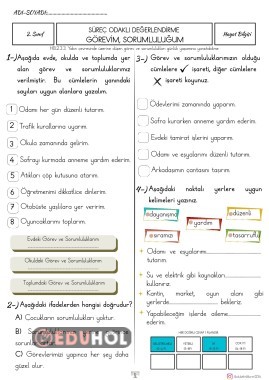 ADI-SOYADI:
2. Sınıf
SÜREÇ ODAKLI DEĞERLENDİRME
GÖREVİM, SORUMLULUĞUM
Hayat Bilgisi
1-) Aşağıda evde, okulda ve toplumda yer
alan görev ve sorumluluklarımız
verilmiştir. Bu cümlelerin yanındaki
sayıları uygun alanlara yazalım.
1 Odamı her gün düzenli tutarım.
2 Trafik kurallarına uyarım.
3 Okula zamanında gelirim.
4 Sofrayı kurmada anneme yardım ederim.
5 Atıkları çöp kutusuna atarım.
6 Öğretmenimi dikkatlice dinlerim.
7 Otobüste yaşlılara yer veririm.
8 Oyuncaklarımı toplarım.
Evdeki Görev ve Sorumluluklarım
Okuldaki Görev ve Sorumluluklarım
Toplumdaki Görev ve Sorumluluklarım
2-) Aşağıdaki ifadelerden hangisi doğrudur?
A) Çocukların sorumlulukları yoktur.
B)
sorumluluklarımız onlara
C) Görevlerimizi yapınca her şey daha
güzel olur.
EDUHOL
3-) Görev ve sorumluluklarımızın olduğu
cümlelere ✓ işareti, diğer cümlelere
X işareti koyunuz.
Ödevlerimi zamanında yaparım.
Sofra kurarken anneme yardım ederim.
Evdeki tamirat işlerini yaparım.
Odamı ve eşyalarımı düzenli tutarım.
Arkadaşımın çantasını taşırım.
4-) Aşağıdaki noktalı yerlere uygun
kelimeleri yazınız.
dayanışma
düzenli
yardım
sıramızı
tasarruflu
Odamı ve eşyalarımı
tutarım.
Su ve elektrik gibi kaynakları
kullanırız.
Kantin, market, oyun alanı gibi
yerlerde bekleriz.
Yapabileceğim işlerde aileme
ederim.